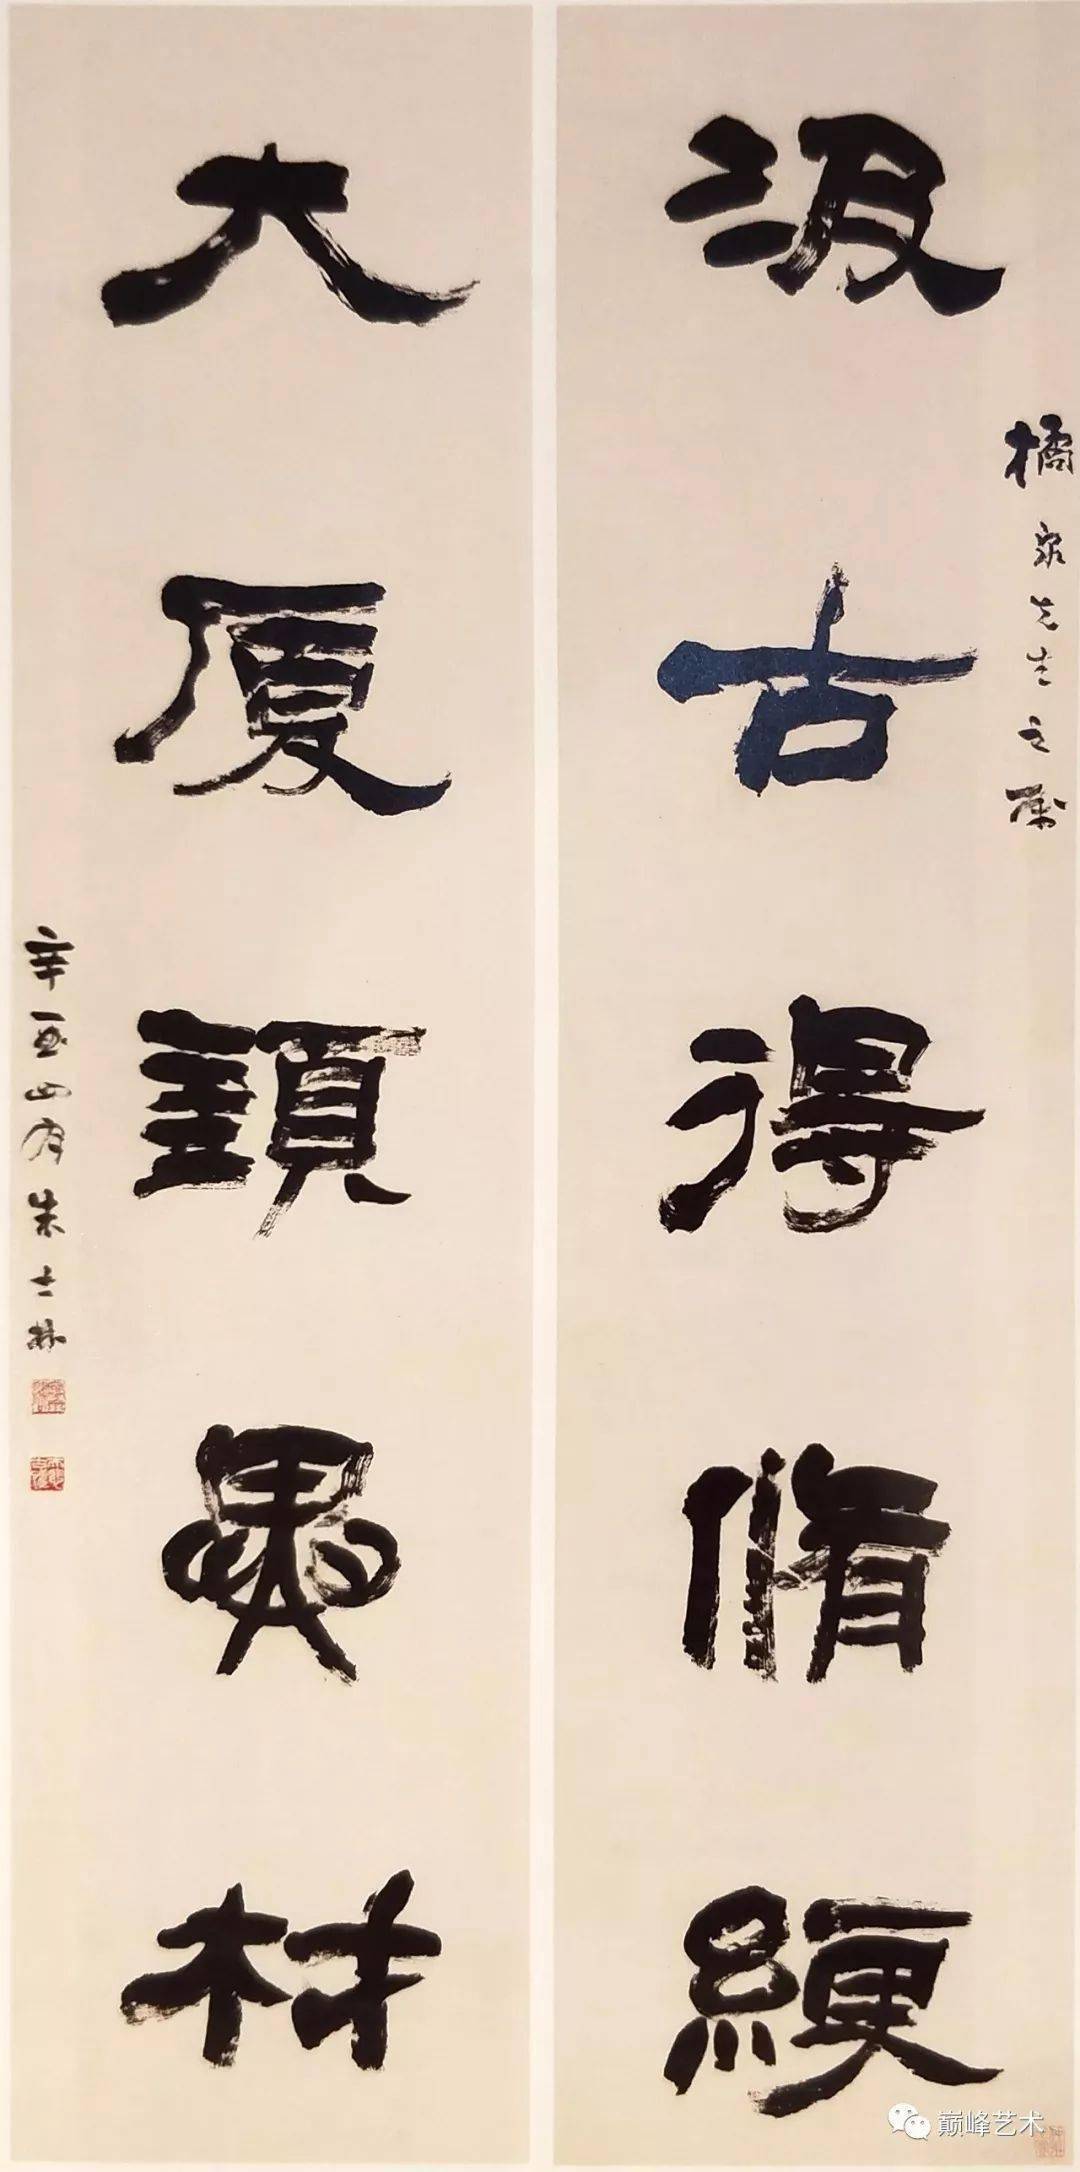 橘泉先生之属
汲古得脩綆
大厦須異材
辛酉四月朱士林
巅峰艺术